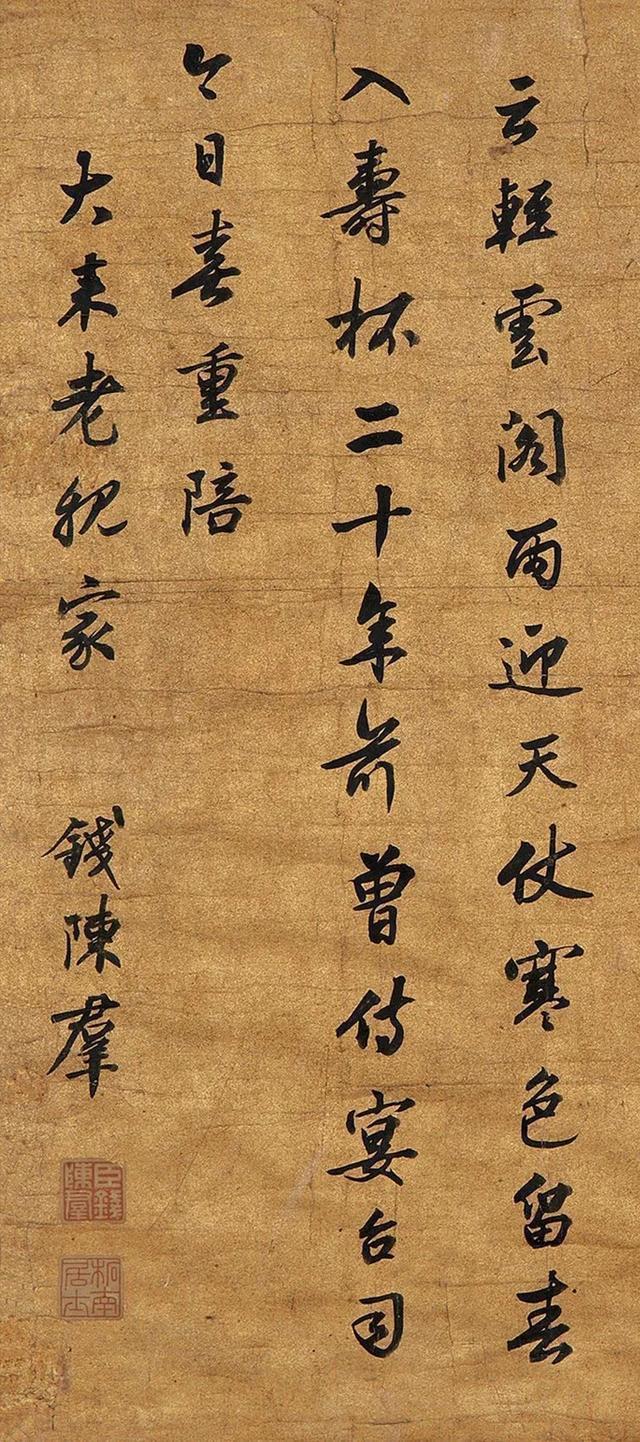 云輕雲閣雨迎天仗寒色留春
入壽杯二十年前曾侍宴台司
今日喜重陪
大來老親家
錢陳羣
臣錢陳羣
柘南居士